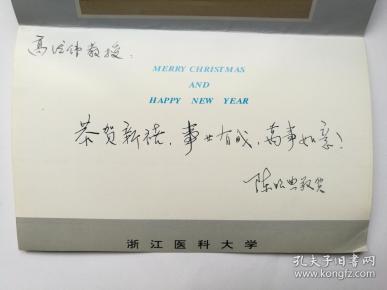 高信伟教授:
MERRY CHRISTMAS
AND
HAPPY NEW YEAR
恭贺新禧，事业有成，萬事如意!
陈昭典敬贺
浙江医科大学
孔夫子旧书网